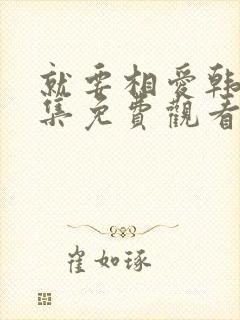 就要相愛韩
集免費觀看
崔如琢